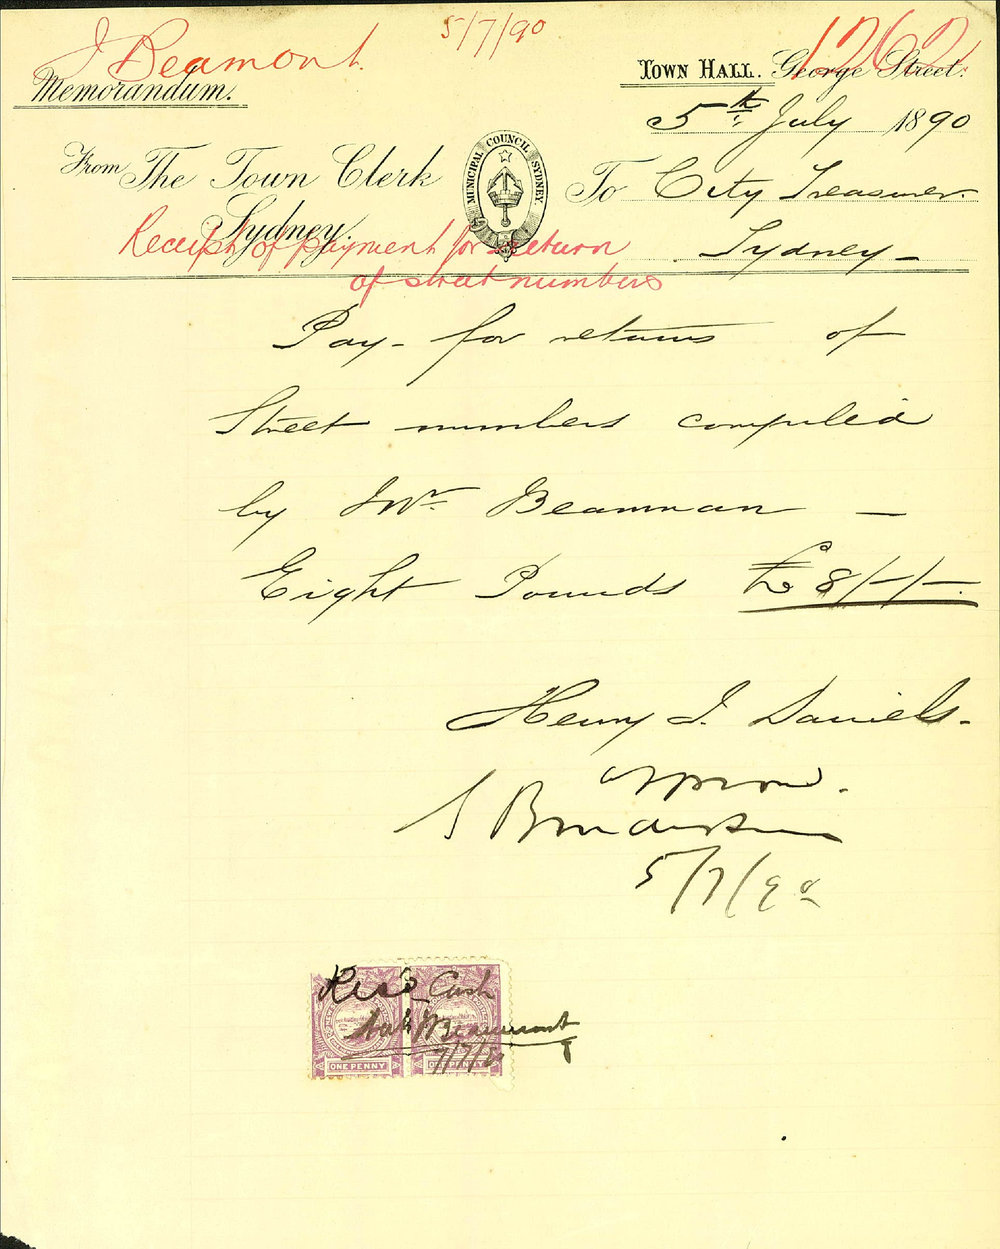 J Beamont.
5/7/90
1262
Memorandum.
Town Hall. George Street.
5th July 1890
From The Town Clerk
Sydney.
MUNICIPAL COUNCIL SYDNEY.
To City Treasurer.
Sydney -
Receipt of payment for return
of street numbers
Pay - for returns of
Street numbers compiled
by Mr Beamman -
Eight Pounds £8/-/-.
Henry J. Daniels.
5/7/90
Recd Cash
Beaumont
7/7/
ONE PENNY ONE PENNY